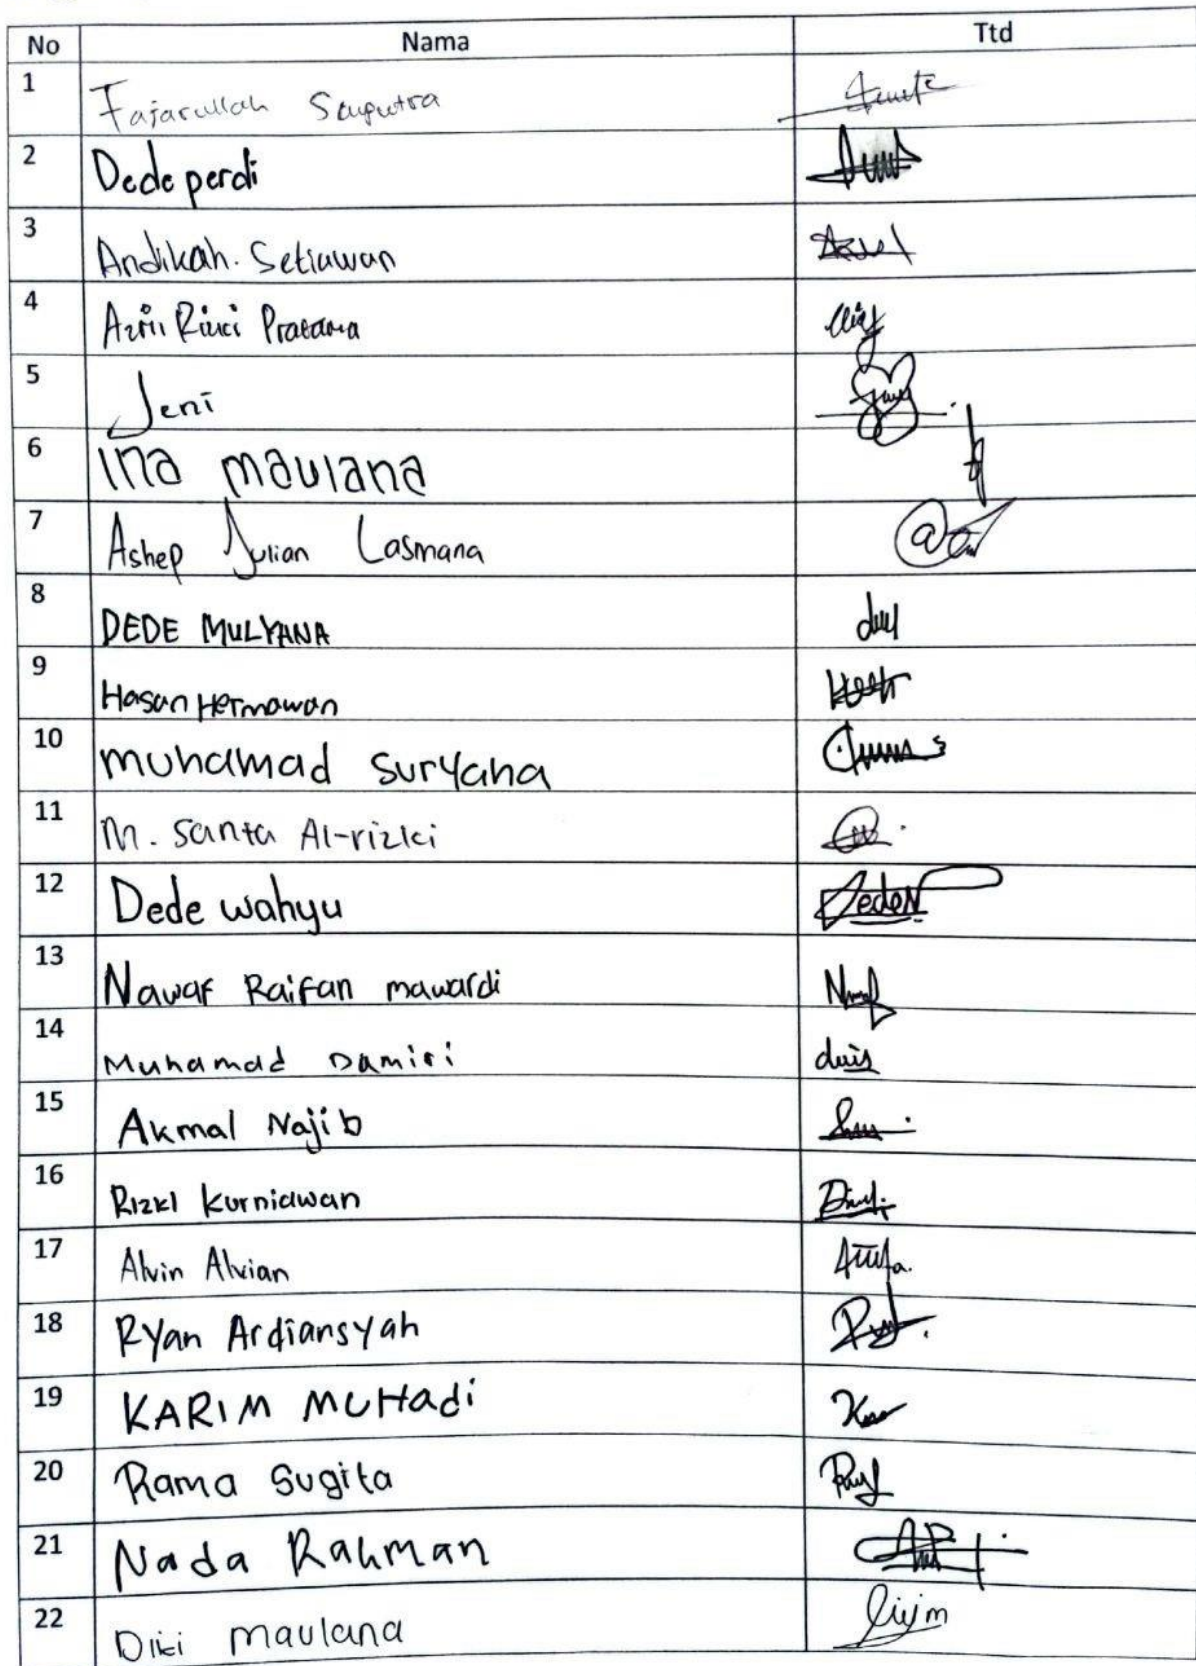 No Nama Ttd
1 Fajarullah Saputra
2 Dede perdi
3 Andikah. Setiawan
4 Azril Rizki Pratama
5 Jeni
6 Ina maulana
7 Ashep Julian Lasmana
8 DEDE MULYANA
9 Hasan Hermawan
10 muhamad suryana
11 M. Santa Al-rizki
12 Dede wahyu Deden
13 Nawaf Raifan mawardi
14 Muhamad Damiri
15 Akmal Najib
16 Rizki Kurniawan
17 Alvin Alvian
18 Ryan Ardiansyah
19 KARIM MUHadi
20 Rama Sugita
21 Nada Rahman
22 Diki maulana